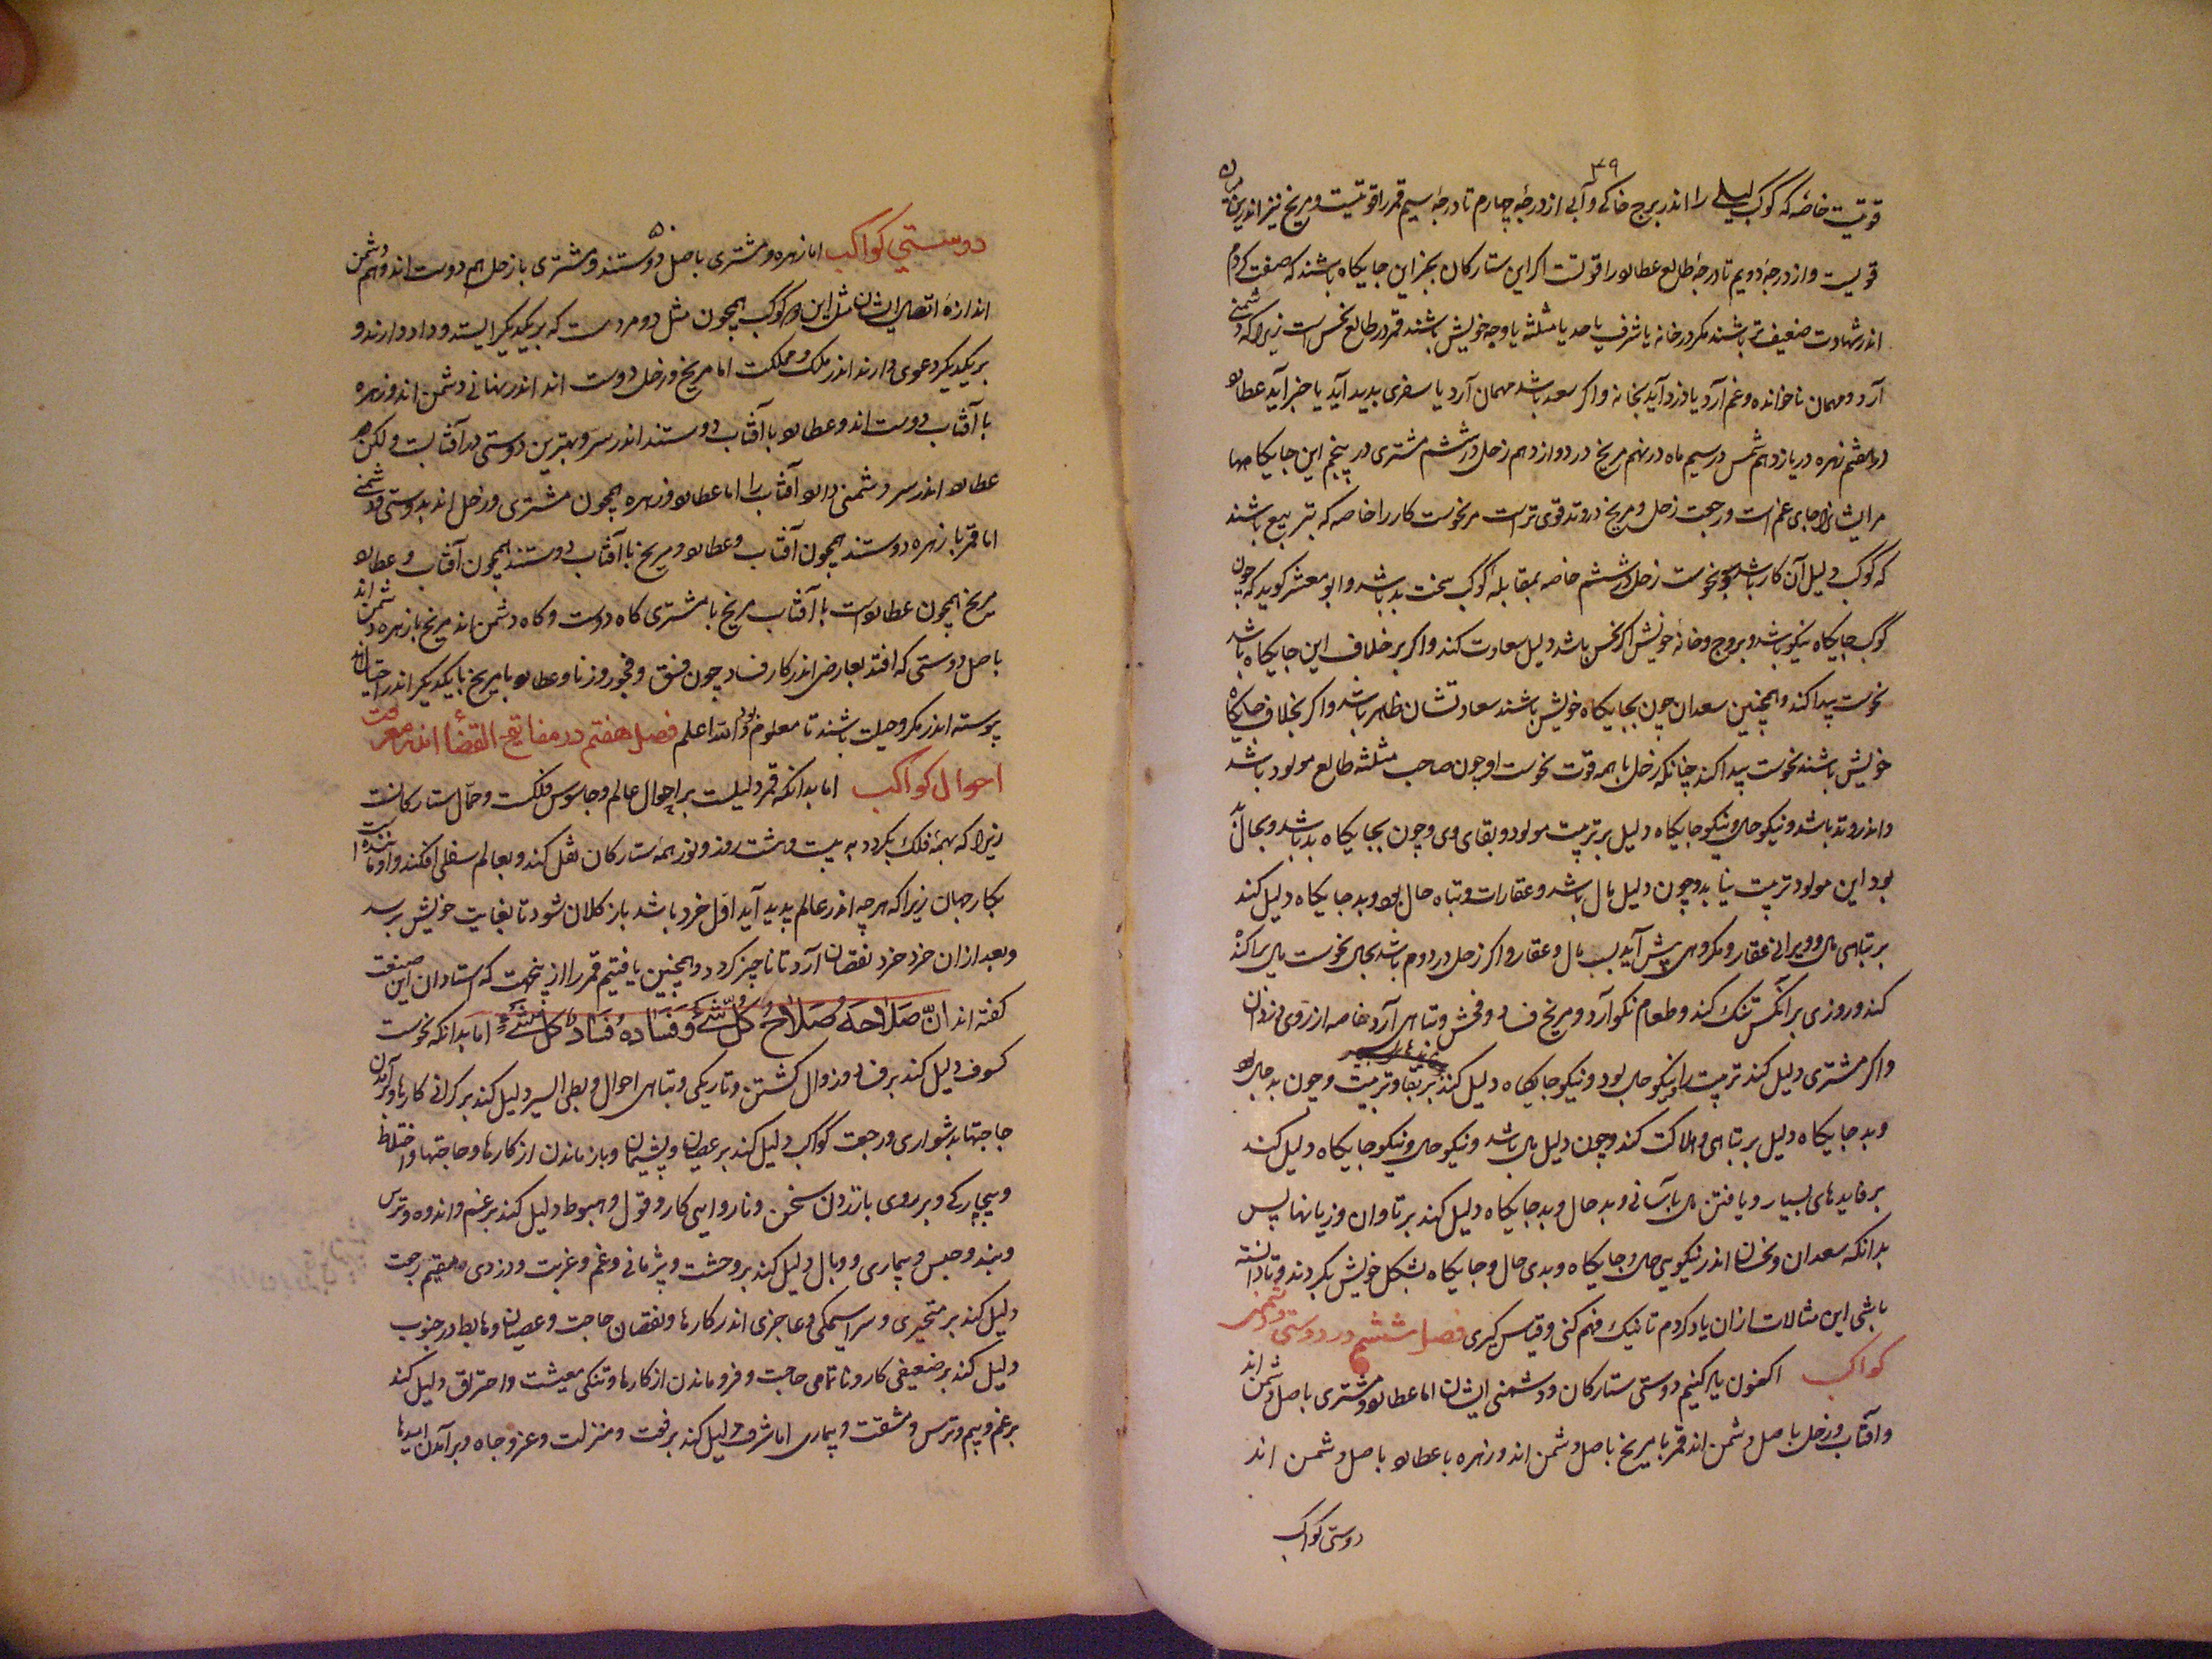 ۳۹
قویست خاصه که کوکب لیلی را اندر برج خاکی و آبی از درجهٔ چهارم تا درجهٔ سیم قمر را قوتیست و مریخ نیز اندرین میان
قویست و از درجهٔ دویم تا درجهٔ طالع عطارد را قوتست اکر این ستارکان بجز این جایکاه باشند که صفت کردم
اندر شهادت ضعیف‌تر باشند مکر در خانه یا شرف یا حد یا مثلثه یا وجه خویش باشند قمر در طالع نحس است زیرا که دشمنی
آرد و مهمان ناخوانده و غم آرد یا دزد آید بخانه و اکر سعد باشد مهمان آرد یا سفری بدید آید یا خبر آید عطارد
در هفتم زهره در یازدهم شمس در سیم ماه در نهم مریخ در دوازدهم زحل در ششم مشتری در پنجم این جایکاهها
مر ایشانرا جای غم است و رجعت زحل و مریخ در وتد قوی‌تر است مر نحوست کار را خاصه که بتربیع باشند
که کوکب دلیل آن کار باشد و نحوست زحل در ششم خاصه بمقابلهٔ کوکب سخت بد باشد و ابو معشر کوید که چون
کوکب جایکاه نیکو باشد و بروج و خانهٔ خویش اکر نحس باشد دلیل سعادت کند و اکر بر خلاف این جایکاه باشد
نحوست پیدا کند و همچنین سعدان چون بجایکاه خویش باشند سعادتشان ظاهر باشد و اکر بخلاف جایکاه
خویش باشند نحوست پیدا کند چنانکه زحل با همه قوت نحوست او چون صاحب مثلثه طالع مولود باشد
و اندر وتد باشد و نیکو حال و نیکو جایکاه دلیل بر تربیت مولود و بقای وی و چون بجایکاه بد باشد و بحال
بود این مولود تربیت نیابد و چون دلیل مال باشد و عقارات و تباه حال بود و بد جایکاه دلیل کند
بر تباهی مال و ویرانی عقار و مکروهی پیش آید بسبب مال و عقار و اکر زحل در دوم باشد بحال نحوست مال پراکنده
کند و روزی بر آنکس تنک کند و طعام نکو آرد و مریخ فساد و فحش و تباهی آرد خاصه از روی زنان
و اکر مشتری دلیل کند تربیت را نیکو حال بود و نیکو جایکاه دلیل کند بر بقا و تربیت و چون بد حال بود
و بد جایکاه دلیل بر تباهی و هلاکت کند و چون دلیل مال باشد و نیکو حال و نیکو جایکاه دلیل کند
بر فایدهای بسیار و یافتن مال بآسانی و بد حال و بد جایکاه دلیل کند بر تاوان و زیانها پس
بدانکه سعدان و نحسان اندر نیکویی حال و جایکاه و بدی حال و جایکاه بشکل خویش بکردند و تا دانسته
باشی این مثالات ازان یاد کردم تا نیک فهم کنی و قیاس کیری فصل ششم در دوستی و دشمنی
کواکب اکنون یاد کنیم دوستی ستارکان و دشمنی ایشان اما عطارد و مشتری باصل دشمن اند
و آفتاب و زحل باصل دشمن اند قمر با مریخ باصل دشمن اند و زهره با عطارد باصل دشمن اند
دوستی کواکب
دوستی کواکب اما زهره و مشتری باصل دوستند و مشتری با زحل هم دوست اند و هم دشمن
اندازهٔ اتصال ایشان مثل این دو کوکب همچون مثل دو مردست که بر یکدیکر ایستد و داد دارند و
بر یکدیکر دعوی دارند اندر ملک و مملکت اما مریخ و زحل دوست اند اندر نهانی دشمن اند و زهره
با آفتاب دوست اند و عطارد با آفتاب دوستند اندر سر و بهترین دوستی مر آفتابست ولکن
عطارد اندر سر دشمنی دارد آفتاب را اما عطارد و زهره همچون مشتری و زحل اند بدوستی و دشمنی
اما قمر با زهره دوستند همچون آفتاب و عطارد و مریخ با آفتاب دوستند همچون آفتاب و عطارد
مریخ همچون عطاردست با آفتاب مریخ با مشتری کاه دوست و کاه دشمن اند مریخ با زهره دشمن اند
باصل دوستی که افتد بعارض اندر کار فساد چون فسق و فجور و زنا و عطارد با مریخ با یکدیکر اندر
پیوسته اندر مکر و حیلت باشند تا معلوم بود والله اعلم فصل هفتم در مفاتیح القضأ اندر معرفت
احوال کواکب اما بدانکه قمر دلیلست بر احوال عالم و جاسوس فلکست و حمّال ستارکانست
زیرا که بهمهٔ فلک بکردد به بیست و هشت روز و نور همهٔ ستارکان نقل کند و بعالم سفلی افکند و او مانندهٔ است
بکار جهان زیرا که هرچه اندر عالم بدید آید اول خرد باشد باز کلان شود تا بغایت خویش برسد
و بعد ازان خرد خرد نقصان آرد تا ناچیز کردد و همچنین یافتیم قمر را از ینجهت که استادان این صنعت
کفته اند انّ صَلَاحَهُ صَلَاحُ کُلِّ شَیءٍ وَ فَسَادهُ فَسَادُ کُلِّ شَیءٍ اما بدانکه نحوست
کسوف دلیل کند بر فساد و زوال کشتن و تاریکی و تباهی احوال و بطی السیر دلیل کند بر کرانی کارها و برآمدن
حاجتها بدشواری و رجعت کواکب دلیل کند بر عصیان و پشیمانی و بازماندن از کارها و حاجتها و اختلاط
و بیچارکی و بر روی باز زدن سخن و ناروایی کار و قول و هبوط دلیل کند بر غم و اندوه و ترس
و بند و حبس و بیماری و وبال دلیل کند بر وحشت و پژمانی و غم و غربت و دزدی و مقیم رجعت
دلیل کند بر متحیری و سراسیمکی و عاجزی اندر کارها و نقصان حاجت و عصیان و هابط در جنوب
دلیل کند بر ضعیفی کار و ناتمامی حاجت و فرو ماندن از کارها و تنکی معیشت و احتراق دلیل کند
بر غم و بیم و ترس و مشقت و بیماری اما شرف دلیل کند بر رفعت و منزلت و عز و جاه و برآمدن امیدها